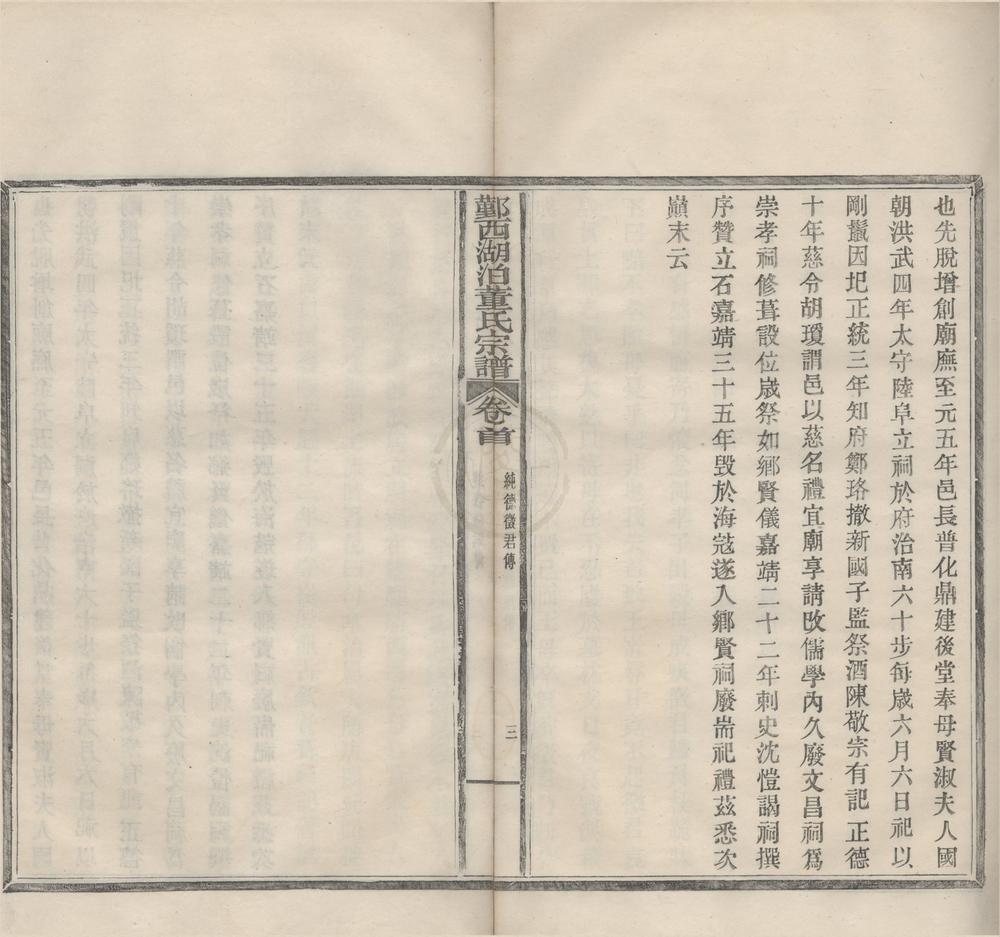 也先脫增創廟廡至元五年邑長普化鼎建後堂奉母賢淑夫人國
朝洪武四年太守陸阜立祠於府治南六十步每歲六月六日祀以
剛鬣因圯正統三年知府鄭珞撤新國子監祭酒陳敬宗有記正德
十年慈令胡瓊謂邑以慈名禮宜廟享請改儒學內久廢文昌祠爲
崇孝祠修葺設位歲祭如鄉賢儀嘉靖二十二年刺史沈愷謁祠撰
序贊立石嘉靖三十五年毀於海寇遂入鄉賢祠廢耑祀禮茲悉次
巔末云
鄞西湖泊董氏宗譜
卷首
純德徵君傳
三